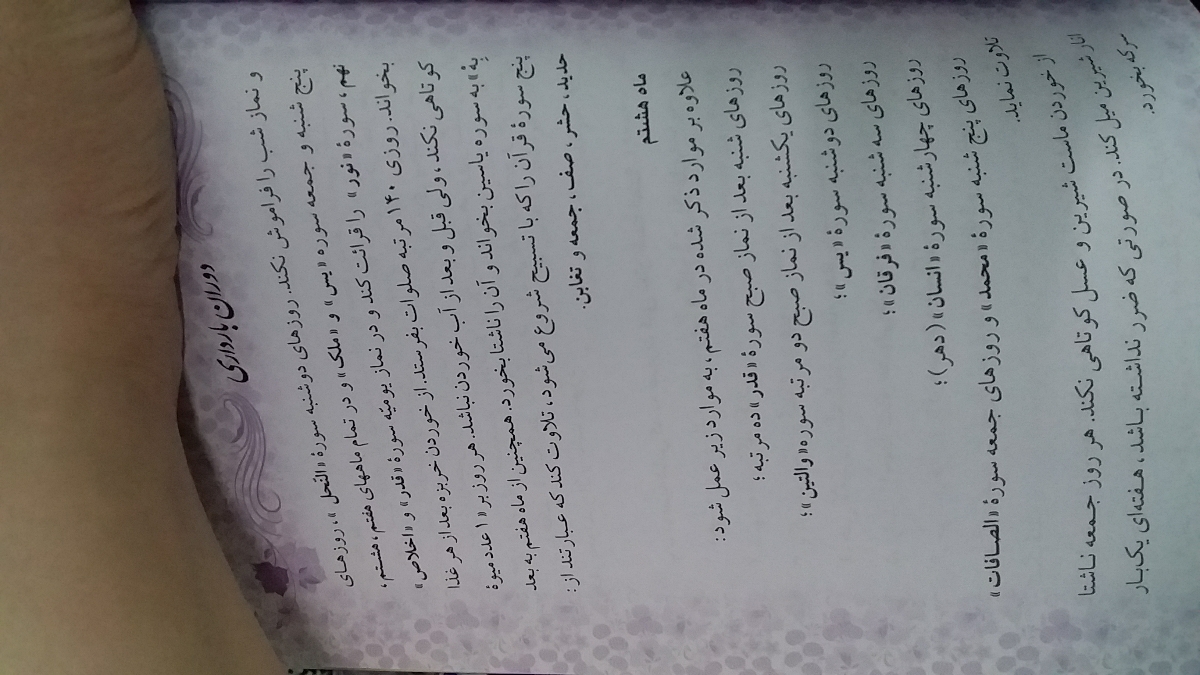 دوران بارداری
و نماز شب را فراموش نکند. روزهای دوشنبه سورهٔ «النحل»، روزهای
پنج شنبه و جمعه سوره «یس» و «ملک» و در تمام ماههای هفتم، هشتم،
نهم، سورهٔ «نور» را قرائت کند و در نماز یومیّه سورهٔ «قدر» و «اخلاص»
بخواند. روزی ۱۴۰ مرتبه صلوات بفرستد. از خوردن خربزه بعد از هر غذا
کوتاهی نکند، ولی قبل و بعد از آب خوردن نباشد. هر روز بر «۱ عدد میوهٔ
به» به سوره یاسین بخواند و آن را ناشتا بخورد. همچنین از ماه هفتم به بعد
پنج سورهٔ قرآن را که با تسبیح شروع می‌شود، تلاوت کند که عبارتند از:
حدید، حشر، صف، جمعه و تغابن.
ماه هشتم
علاوه بر موارد ذکر شده در ماه هفتم، به موارد زیر عمل شود:
روزهای شنبه بعد از نماز صبح سورهٔ «قدر» ده مرتبه؛
روزهای یکشنبه بعد از نماز صبح دو مرتبه سوره «والتین»؛
روزهای دوشنبه سورهٔ «یس»؛
روزهای سه شنبه سورهٔ «فرقان»؛
روزهای چهارشنبه سورهٔ «انسان» (دهر)؛
روزهای پنج شنبه سورهٔ «محمد» و روزهای جمعه سورهٔ «الصافات»
تلاوت نماید.
از خوردن ماست شیرین و عسل کوتاهی نکند. هر روز جمعه ناشتا
انار شیرین میل کند. در صورتی که ضرر نداشته باشد، هفته‌ای یک‌بار
سرکه بخورد.